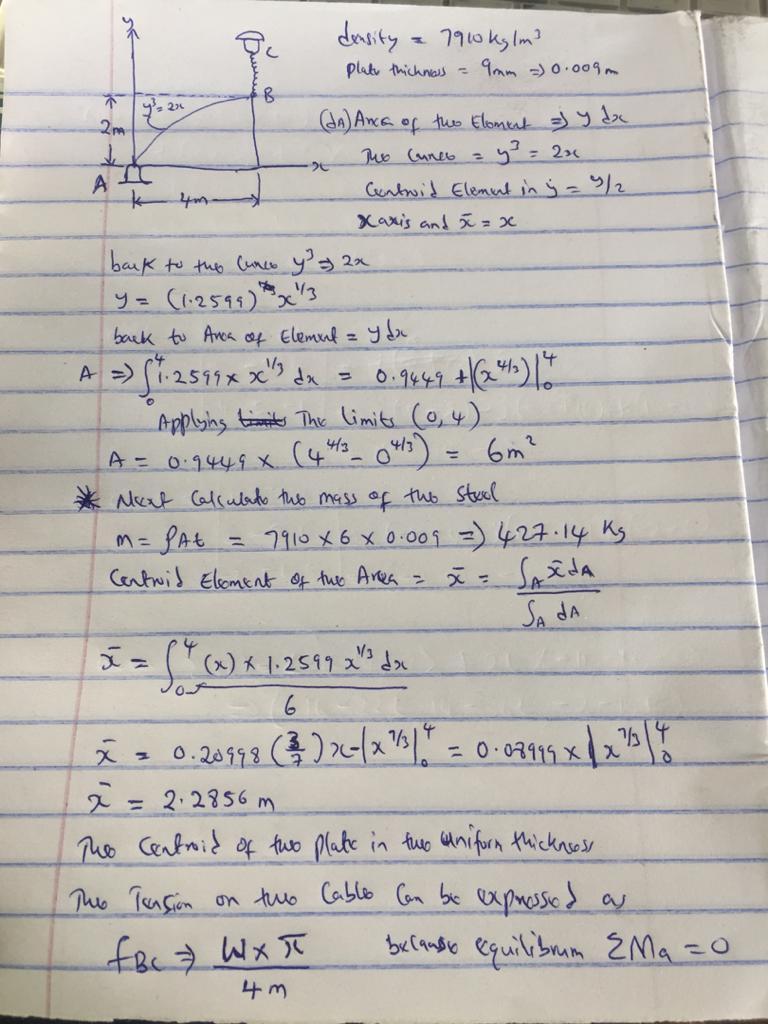 y
C
B
y³=2x
2m
x
A
4m
density = 7910 kg/m³
plate thickness = 9mm => 0.009m
(dA) Area of the Element => y dx
The Curve = y³ = 2x
Centroid Element in ȳ = y/2
x axis and x̄ = x
back to the Curve y³ => 2x
y = (1.2599) x^1/3
back to Area of Element = y dx
A => ∫₀⁴ 1.2599 × x^1/3 dx = 0.9449 * |(x^4/3)|₀⁴
Applying Limits The limits (0, 4)
A = 0.9449 × (4^4/3 - 0^4/3) = 6m²
* Next Calculate the mass of the Steel
m = ρAt = 7910 × 6 × 0.009 => 427.14 Kg
Centroid Element of the Area = x̄ = ∫A x̄ dA / ∫A dA
x̄ = ∫₀⁴ (x) × 1.2599 x^1/3 dx / 6
x̄ = 0.20998 (3/7) x |x^7/3|₀⁴ = 0.08999 × |x^7/3|₀⁴
x̄ = 2.2856 m
The Centroid of the plate in the Uniform thickness
The Tension on the Cable Can be expressed as
fBC => W × x̄ / 4m because equilibrum ΣMa = 0